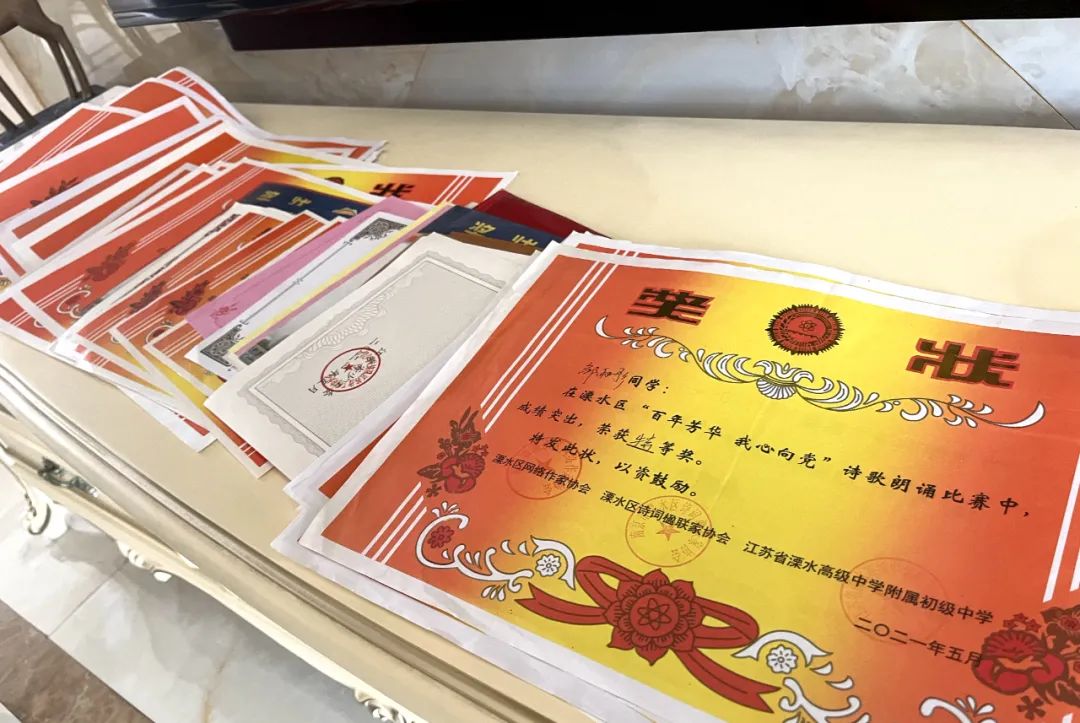 奖状
同学：
在溧水区“百年芳华 我心向党”诗歌朗诵比赛中，
成绩突出，荣获特等奖。
特发此状，以资鼓励。
溧水区网络作家协会 溧水区诗词楹联家协会 江苏省溧水高级中学附属初级中学
二〇二一年五月
状